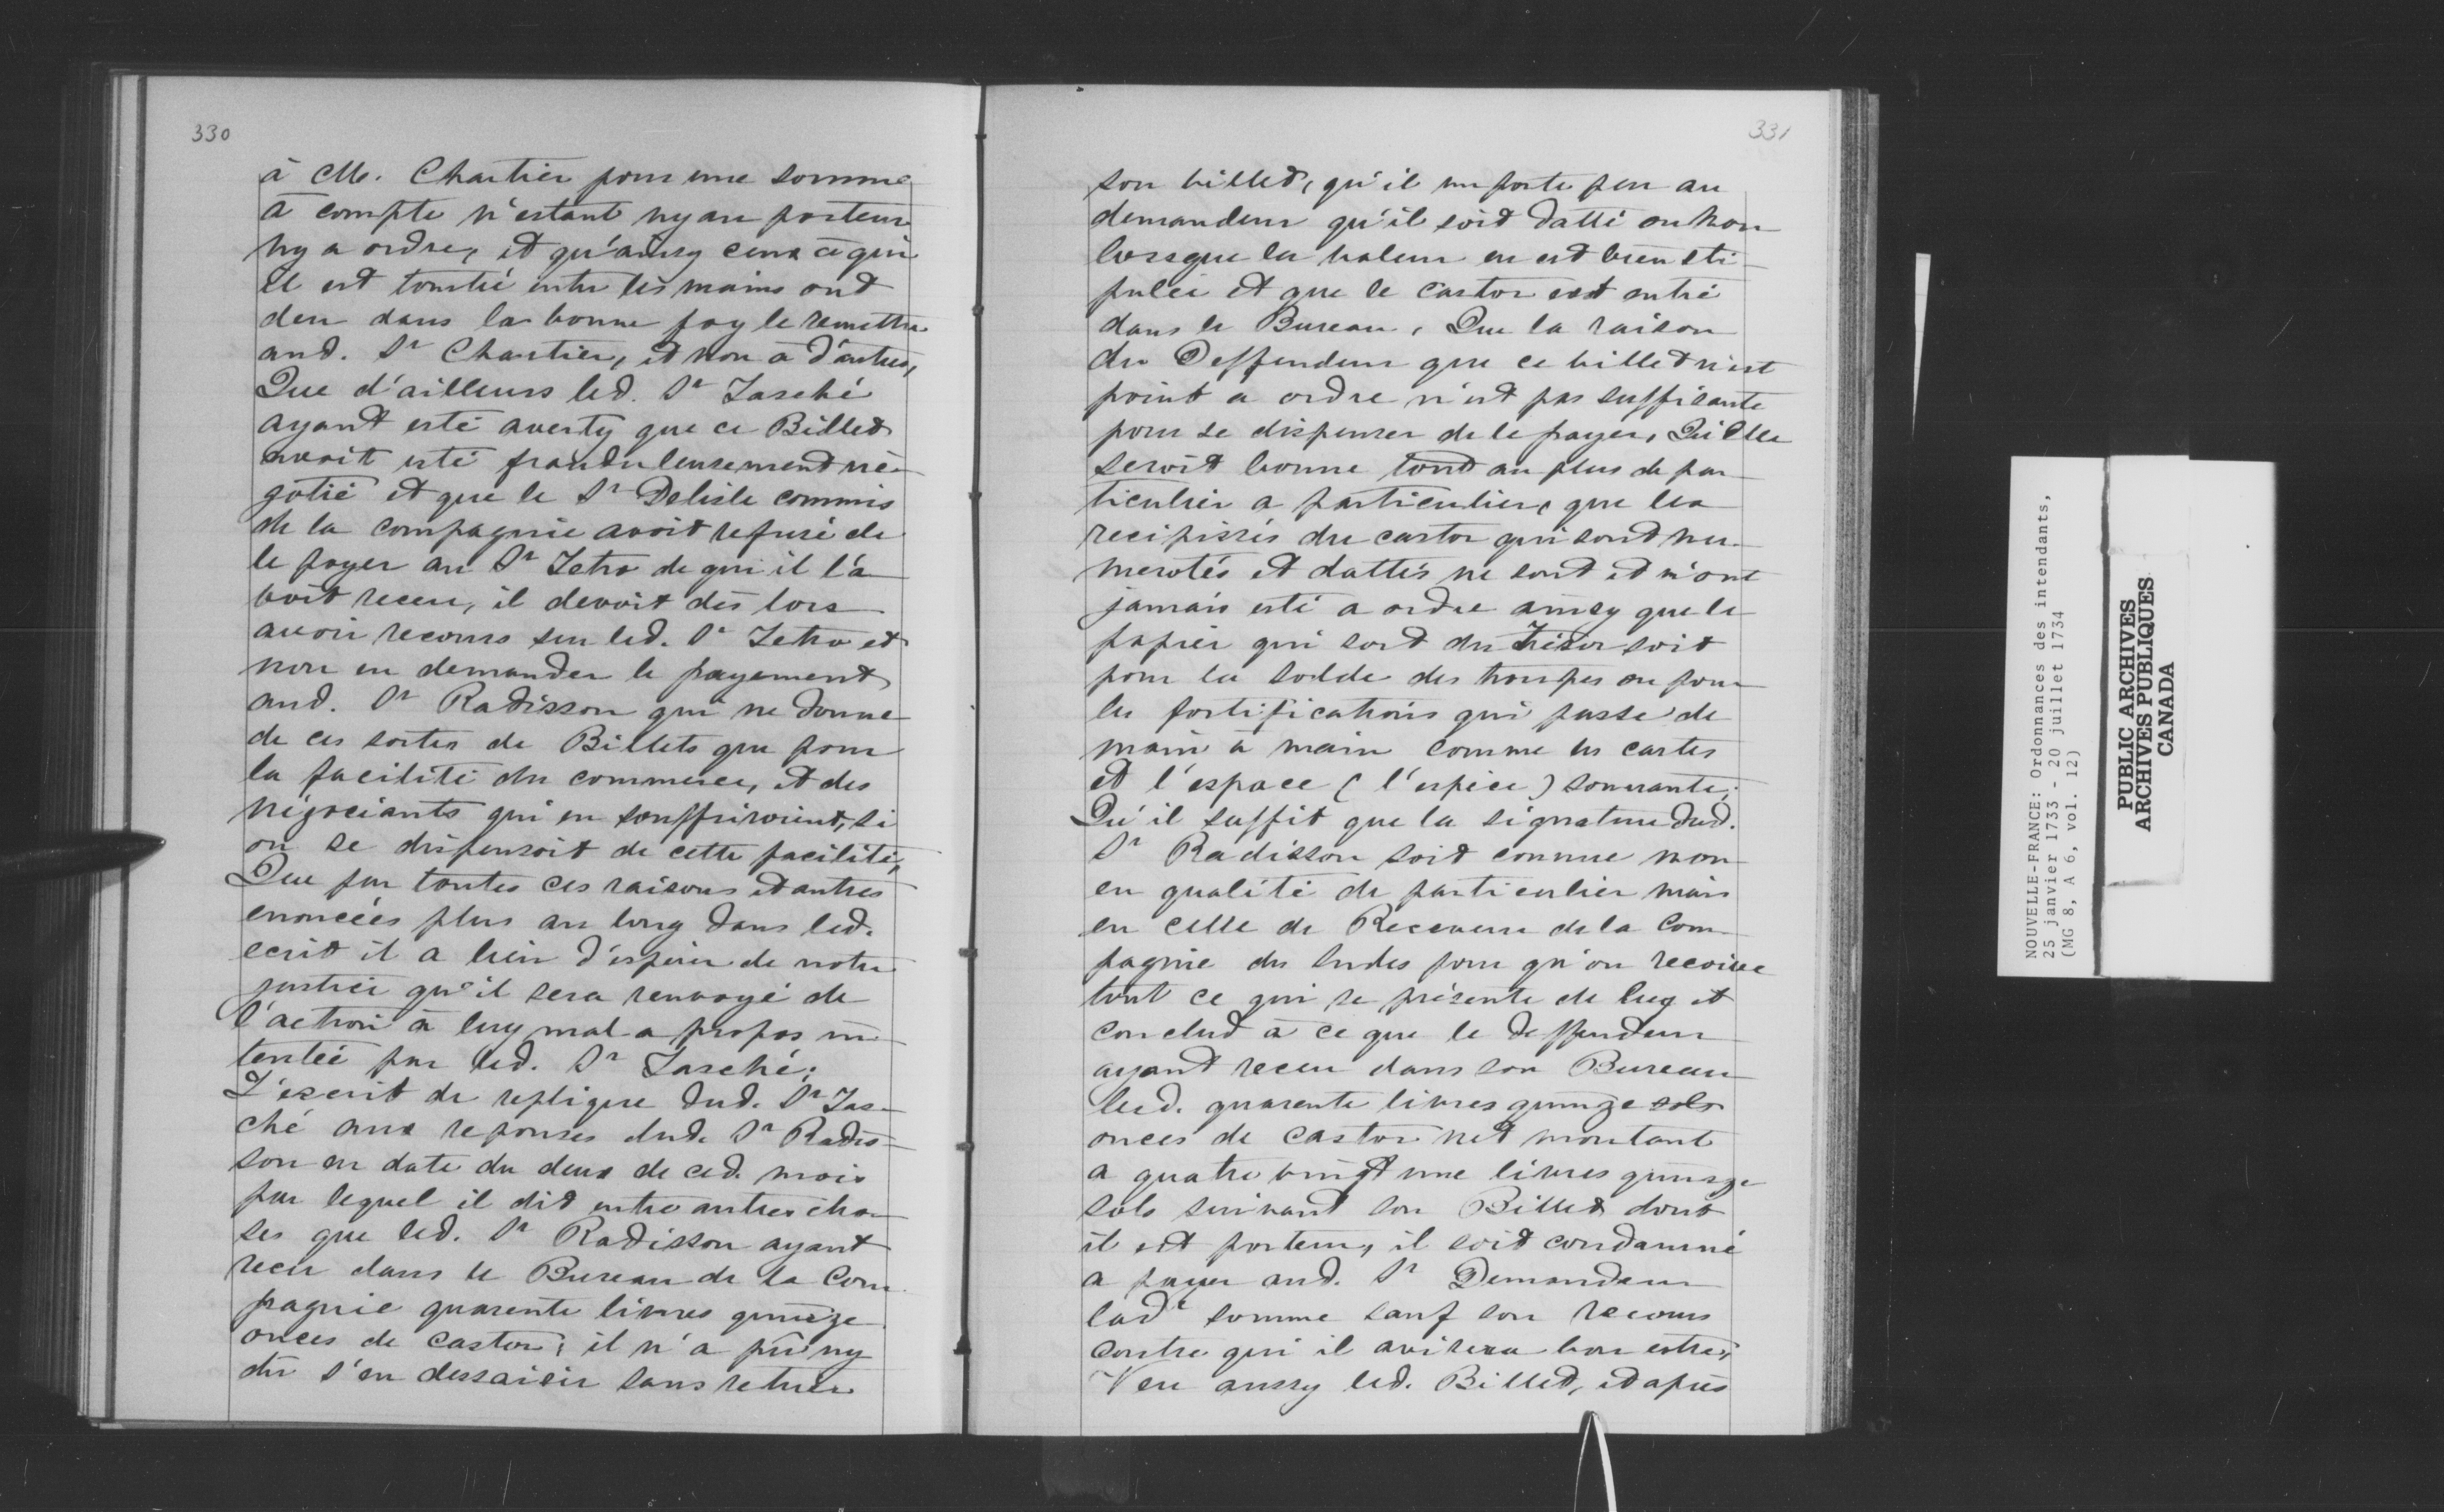 330
à M. Chartier pour une somme
à compte n'estant ny au porteur
ny a ordre, et qu'ainsy ceux à qui
il est tombé entre les mains ont
deu dans la bonne foy le remettre
aud. Sr Chartier, et non à d'autres,
Que d'ailleurs led. Sr Tasché
ayant esté averty que ce Billet
avoit esté frauduleusement né-
gotié et que le Sr Delisle commis
de la compagnie avoit refusé de
le payer au Sr Tetro de qui il l'a
voit receu, il devoit dès lors
avoir recours sur led. Sr Tetro et
non en demander le payement
aud. Sr Radisson qui ne donne
de ces sortes de Billets que pour
la facilité du commerce, et des
négociants qui en souffriroient, si
on se dispensoit de cette facilité,
Que par toutes ces raisons et autres
enoncéés plus au long dans led.
ecrit il a lieu d'éspérer de notre
justice qu'il sera renvoyé de
l'action à luy mal a propos in-
tentéé par led. Sr Tasché;
L'éscrit de replique dud. Sr Tas-
ché aux reponses dud. Sr Radis-
son en date du deux de ced. mois
par lequel il dit entre autres cho-
ses que led. Sr Radisson ayant
receu dans le Bureau de la Com-
pagnie quarente livres quinze
onces de castor, il n'a pû ny
dû s'en dessaisir sans retirer
331
son billet, qu'il importe peu au
demandeur qu'il soit datté ou non
lorsque la valeur en est bien sti-
puléé et que le castor est entré
dans le Bureau, Que la raison
du Deffendeur que ce billet n'est
point a ordre n'est pas suffisante
pour se dispenser de le payer, Qu'elle
seroit bonne tout au plus de par-
ticulier a particulier, que les
recipissés du castor qui sont nu-
merotés et dattés ne sont et n'ont
jamais esté a ordre ainsy que le
papier qui sort du Trésor soit
pour la solde des troupes ou pour
les fortifications qui passe de
main à main comme les cartes
et l'espace (l'espèce) sonnante;
Qu'il suffit que la signature dud.
Sr Radisson soit connue non
en qualité de particulier mais
en celle de Receveur de la Com-
pagnie des Indes pour qu'on recoive
tout ce qui se présente de luy et
conclud à ce que le deffendeur
ayant receu dans son Bureau
lesd. quarente livres quinze sols
onces de castor net montant
a quatre vingt une livres quinze
sols suivant son Billet dont
il est porteur, il soit condamné
a payer aud. Sr Demandeur
lade somme sauf son recours
contre qui il avisera bon estre;
Veu aussy led. Billet, et après
NOUVELLE-FRANCE: Ordonnances des intendants,
25 janvier 1733 - 20 juillet 1734
(MG 8, A 6, vol. 12)
PUBLIC ARCHIVES
ARCHIVES PUBLIQUES
CANADA